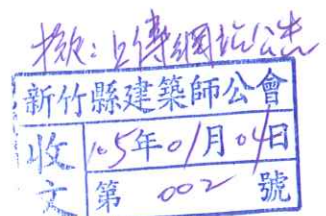 擬：上傳網站公告
新竹縣建築師公會
收文
105年01月04日
第 002 號